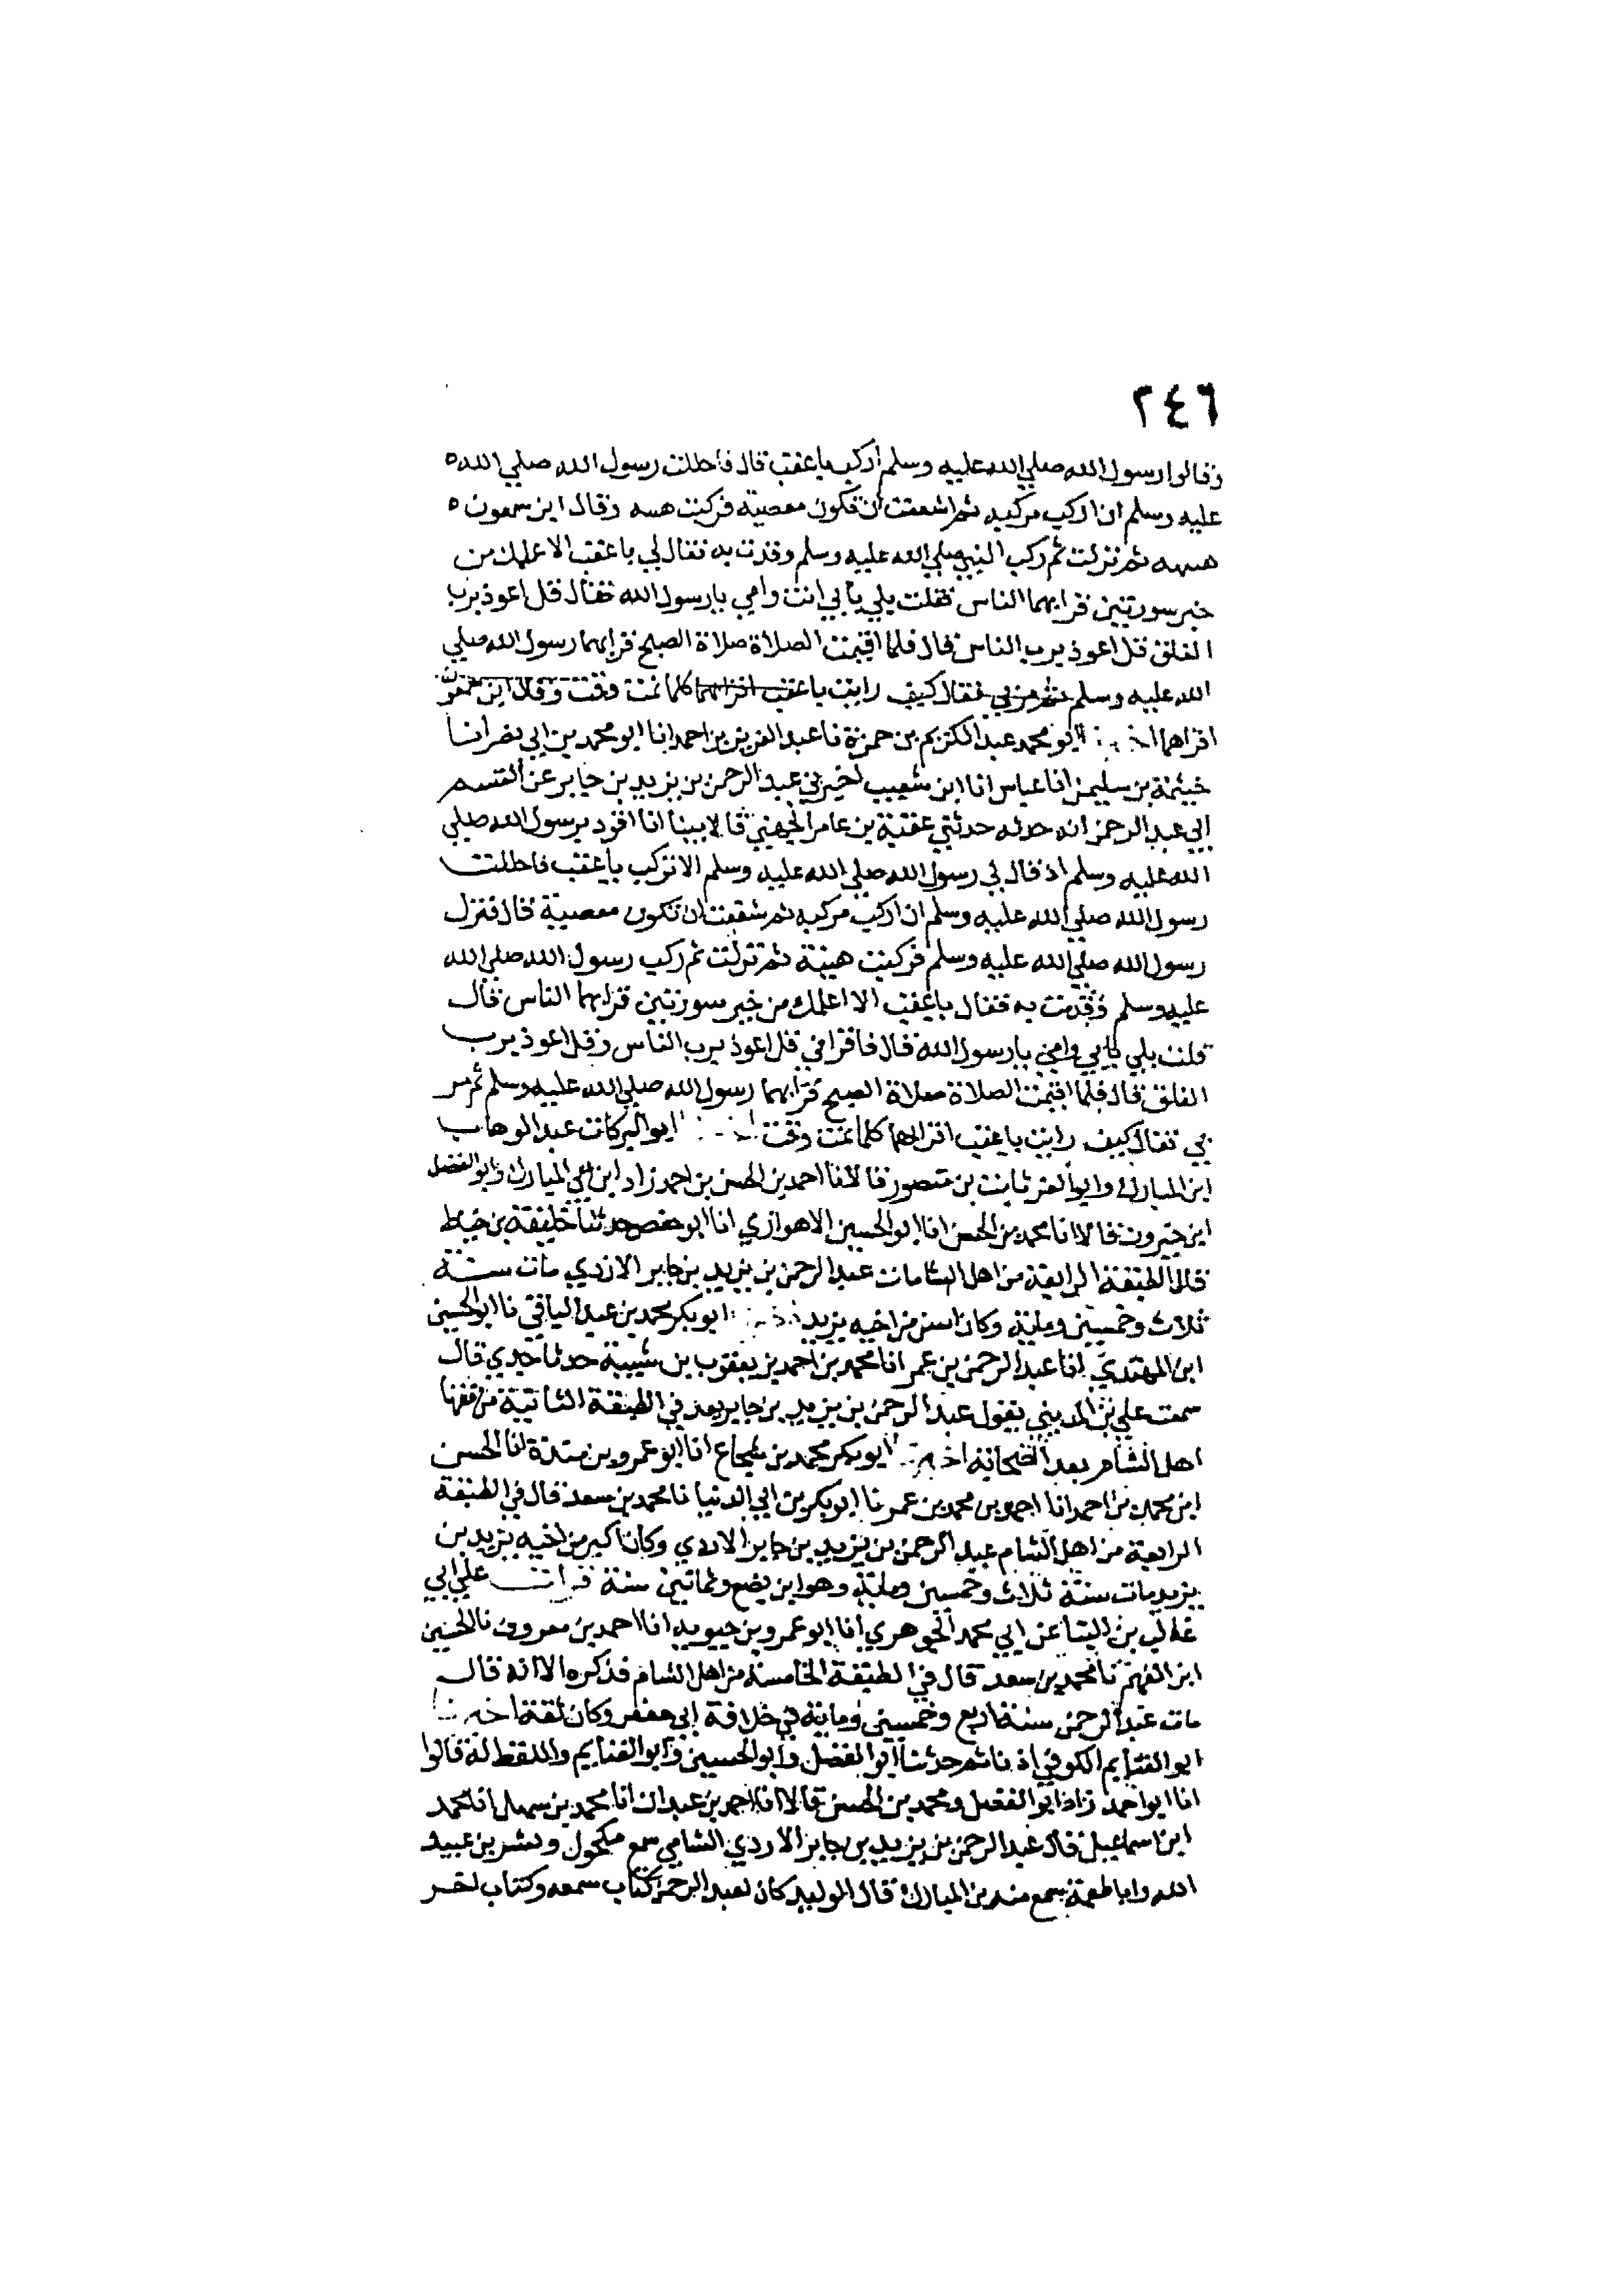 ٢٤٦
وقالوا رسول الله صلي الله عليه وسلم اركب ياعقب قال فاجللت رسول الله صلي الله ه
عليه وسلم ان اركب مركبه ثم اشفقت ان تكون معصية فركبت هسه وقال ابن سمعون ه
هنيهه ثم نزلت ثم ركب النبي صلي الله عليه وسلم وقدت به فقال لي ياعقب الا اعلمك من
خير سورتين قرا بهما الناس فقلت بلي بابي انت وامي يارسول الله فقال قل اعوذ برب
الفلق قل اعوذ برب الناس قال فلما اقيمت الصلاة صلاة الصبح قرا بهما رسول الله صلي
الله عليه وسلم ثم مر بي فقال كيف رايت ياعقب اقرا بهما كلما نمت وقمت وقال ابن سمعون
اقراهما ابو محمد عبد الكريم بن حمزة نا عبد العزيز بن احمد انا ابو محمد بن ابي نصر انا
خيثمة بن سليمن انا عباس انا ابن شعيب اخبرني عبد الرحمن بن يزيد بن جابر عن القسم
ابي عبد الرحمن انه حدثه حدثني عقبة بن عامر الجهني قال بينا انا اقود برسول الله صلي
الله عليه وسلم اذ قال لي رسول الله صلي الله عليه وسلم الا تركب ياعقب فاجللت
رسول الله صلي الله عليه وسلم ان اركب مركبه ثم شفقت ان تكون معصية قال فنزل
رسول الله صلي الله عليه وسلم فركبت هنية ثم نزلت ثم ركب رسول الله صلي الله
عليه وسلم وقدت به فقال ياعقب الا اعلمك من خير سورتين قرا بهما الناس قال
قلت بلي بابي وامي يارسول الله قال فاقراني قل اعوذ برب الناس وقل اعوذ برب
الفلق قال فلما اقيمت الصلاة صلاة الصبح قرا بهما رسول الله صلي الله عليه وسلم ثم مر
بي فقال كيف رايت ياعقب اقرا بهما كلما نمت وقمت ابو البركات عبد الوهاب
ابن المبارك وابو العز ثابت بن منصور قالا نا احمد بن الحسن بن احمد زاد ابن المبارك وابو الفضل
ابن خيرون قالا انا محمد بن الحسن انا ابو الحسين الاهوازي انا ابو حفص حدثنا خليفة بن خياط
قال الطبقة الرابعة من اهل الشامات عبد الرحمن بن يزيد بن جابر الازدي مات سنة
ثلاث وخمسين ومائة وكان اسن من اخيه يزيد ابو بكر محمد بن عبد الباقي نا ابو الحسين
ابن المهتدي انا عبد الرحمن بن عمر انا محمد بن احمد بن يعقوب بن شيبة حدثنا جدي قال
سمعت علي بن المديني يقول عبد الرحمن بن يزيد بن جابر يعد في الطبقة الثانية من فقهاء
اهل الشام بعد الصحابة ابو بكر محمد بن شجاع انا ابو عمرو بن مندة انا الحسن
ابن محمد بن احمد انا احمد بن محمد بن عمر نا ابو بكر بن ابي الدنيا نا محمد بن سعد قال في الطبقة
الرابعة من اهل الشام عبد الرحمن بن يزيد بن جابر الازدي وكان اكبر من اخيه يزيد بن
يزيد مات سنة ثلاث وخمسين ومائة وهو ابن بضع وثمانين سنة قرات علي ابي
غالب بن البنا عن ابي محمد الجوهري انا ابو عمرو بن حيويه انا احمد بن معروف نا الحسين
ابن الفهم نا محمد بن سعد قال في الطبقة الخامسة من اهل الشام فذكره الا انه قال
مات عبد الرحمن سنة اربع وخمسين ومائة في خلافة ابي جعفر وكان ثقة اخبرنا
ابو الغنايم الكوفي اذنا ثم حدثنا ابو الفضل وابو الحسين وابو الغنايم واللفظ له قالوا
انا ابو احمد زاد ابو الفضل ومحمد بن الحسن قالا انا احمد بن عبدان انا محمد بن سهل انا محمد
ابن اسماعيل قال عبد الرحمن بن يزيد بن جابر الازدي الشامي سمع مكحول وبسر بن عبيد
الله وابا طعمة سمع منه بن المبارك قال الوليد كان لعبد الرحمن كتاب سمعه وكتاب اخر